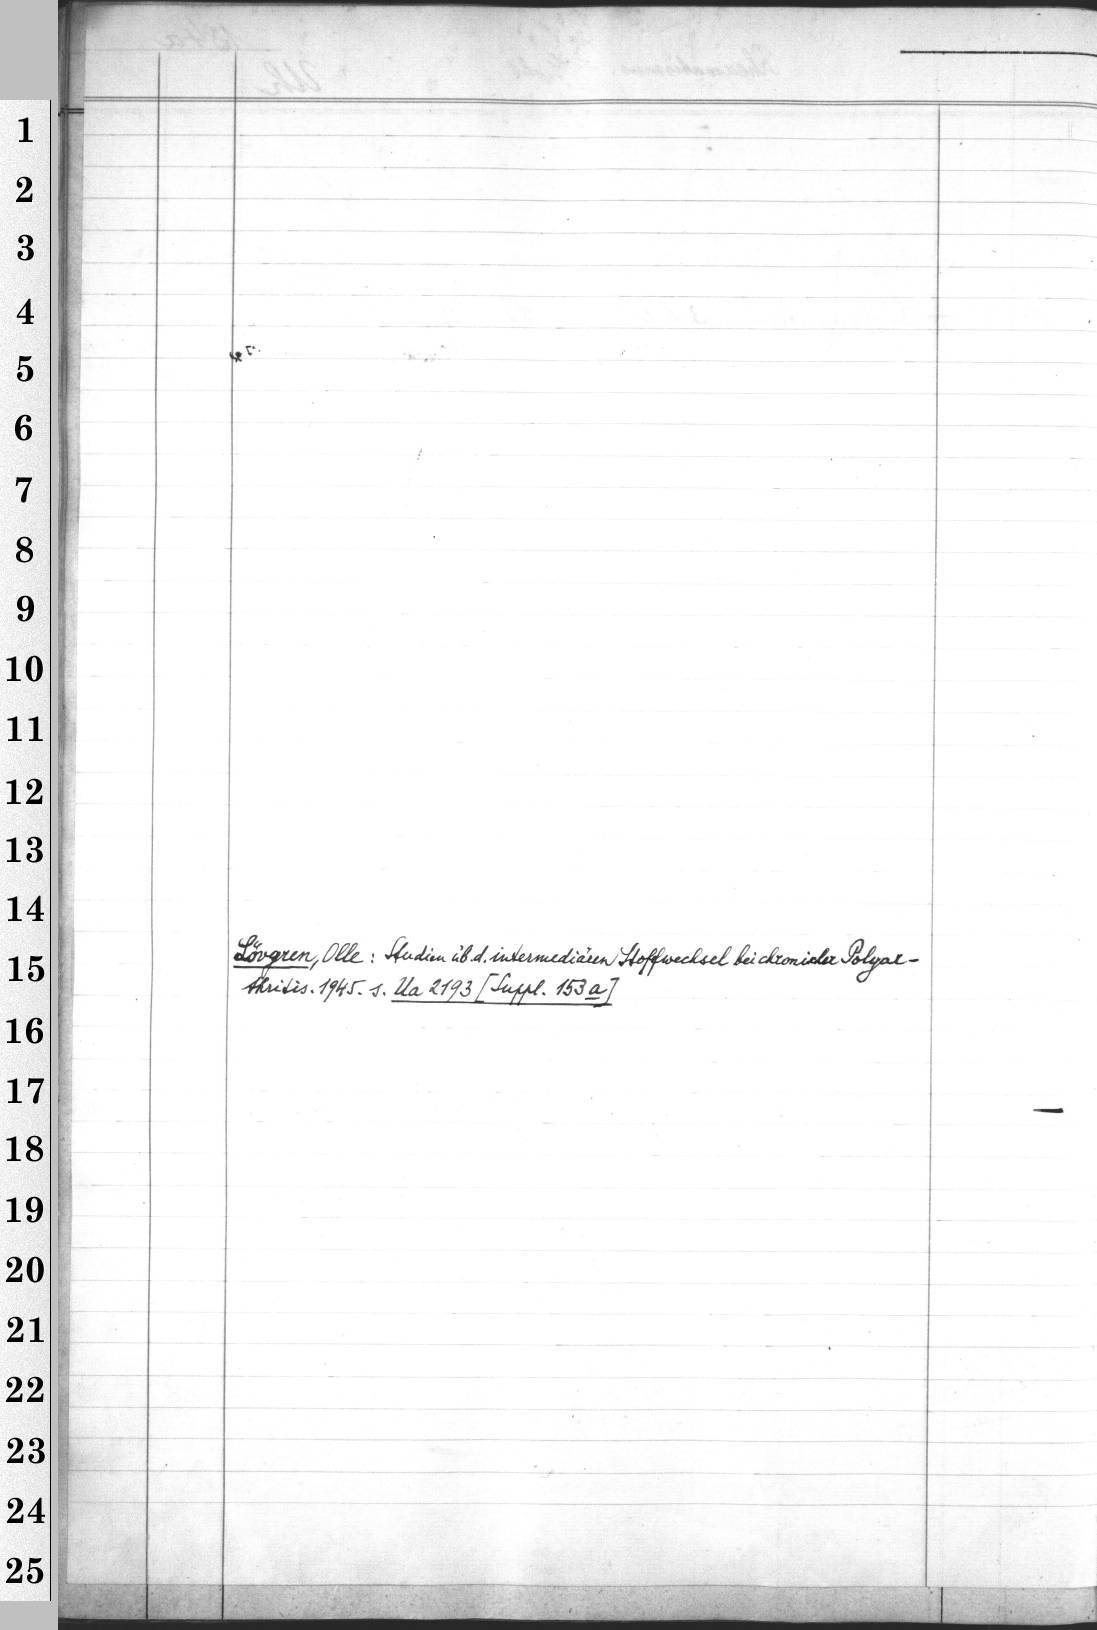 1
2
3
4
5
6
7
8
9
10
11
12
13
14
Lövgren, Olle: Studien üb d. intermediären Stoffwechsel bei chronischer Polyar-
15
thritis. 1945. s. Ua 2193 [Suppl. 153a]
16
17
18
19
20
21
22
23
24
25